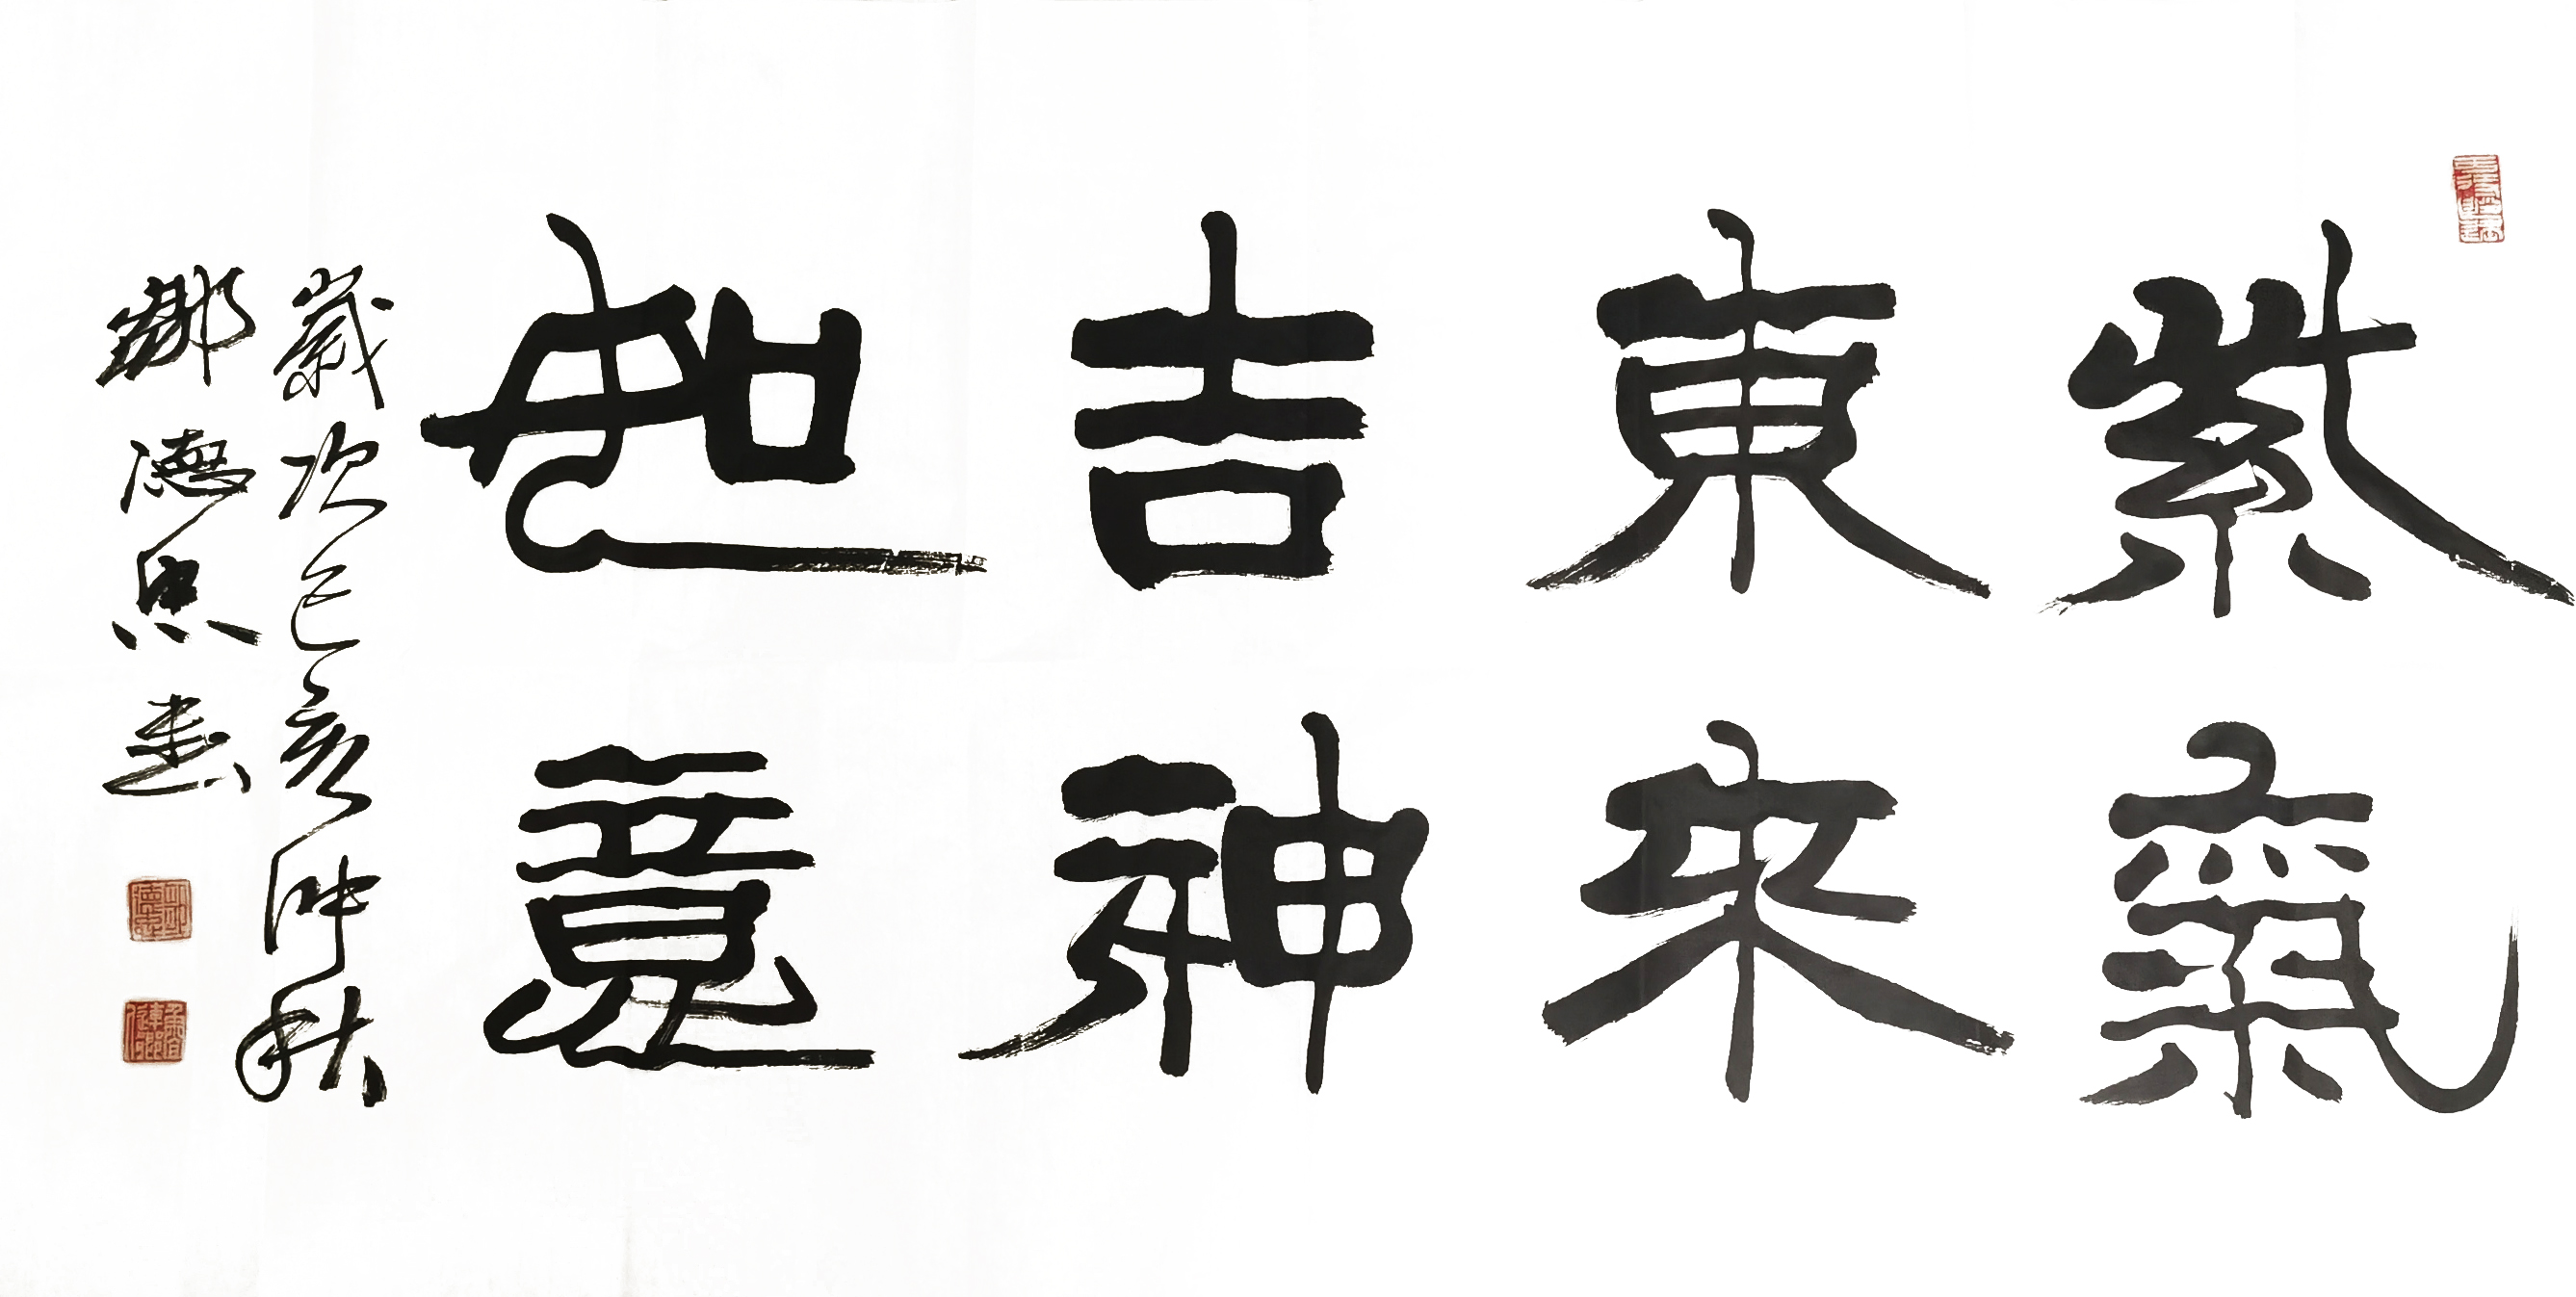 紫氣
東來
吉神
如意
歲次己亥仲秋
鄧德忠書